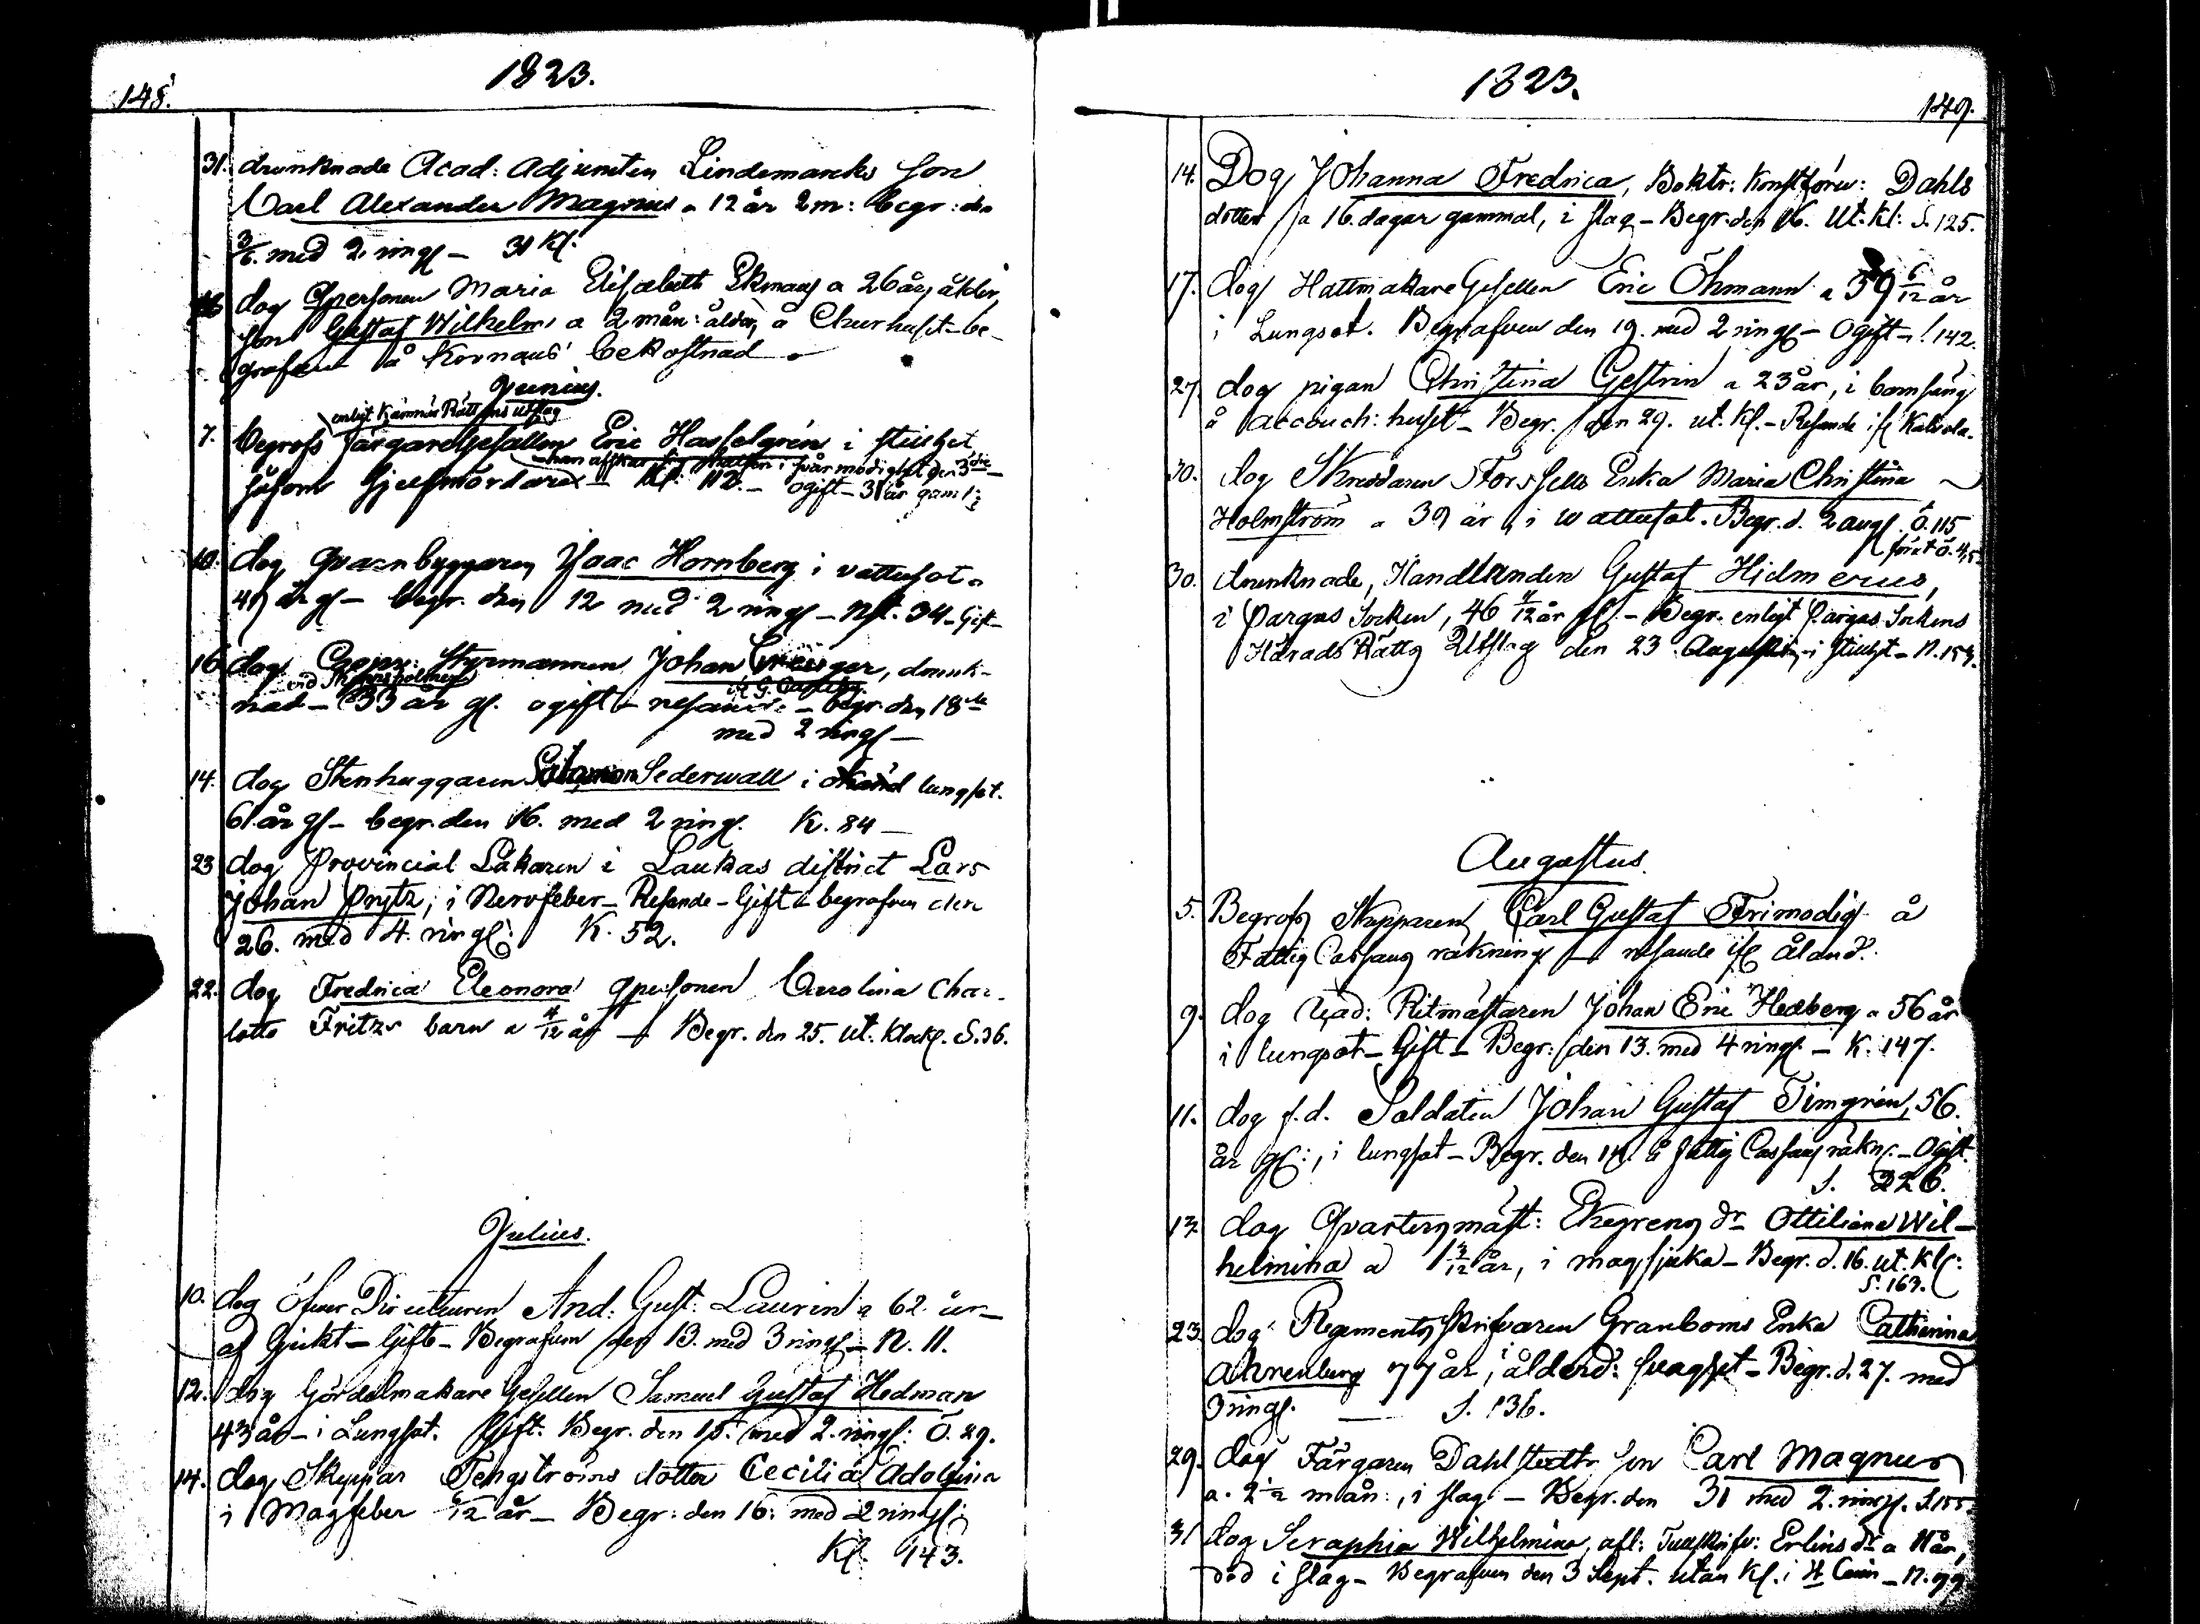 148.
1823.
31. drunknade Acad: Adjuncten Lindemarcks son
Carl Alexander Magnus a 12 år 2 m: begr: dn
3/6. med 2 ringg – 31 Kl.
dog Qpersonen Maria Elisabeth Ekmans a 26 års ålder,
son Gustaf Wilhelm a 2 mån: ålder, å Churhuset – be-
grafven å Kronans bekostnad
Junius.
enligt Kämnärs Rättens utslag
7. begrofs Färgare Gesällen Eric Hasselgrén i stillhet
han afskar sig strupen i svårmodighet den 3die
såsom sjelfmördare – Kl: 112. – ogift – 31 år gaml:
10. dog Qvarnbyggaren Isaac Hornberg i vattusot
49 år gl – begr. den 12 med 2 ringg – N. 34 – Gift –
16. dog Coopv: Styrmannen Johan, drunk-
nad – 33 år gl. ogift – resande – begr. den 18de
med 2 ringg –
14. dog Stenhuggaren Salomon Sederwall i lungsot.
61 år gl – begr. den 16. med 2 ringg. K. 84 –
23 dog Provincial Läkaren i Laukas district Lars
Johan Prytz, i Nervfeber – Resande – Gift – begrafven den
26. med 4. ringg: K. 52.
22. dog Fredrica Eleonora Qpersonen Carolina Char-
lotta Fritzs barn a 4/12 år – Begr. den 25. ut. Klockg. S. 36.
Julius.
10. dog Öfver Directeuren And: Gust: Laurin a 62 år –
af Gickt – Gift – Begrafven den 13. med 3 ringg – N. 11.
12. dog Gördelmakare Gesällen Samuel Gustaf Hedman
43 år – i Lungsot. Gift. Begr. den 15. med 2. ringg: Ö. 29.
14. dog Skeppar Tengströms dotter Cecilia Adolfina
i Magfeber /12 år – Begr: den 16: med 2 ringg:
Kl. 143.
1823.
149.
14. Dog Johanna Fredrica, Boktr: Konstförv: Dahls
dotter a 16. dagar gammal, i slag – Begr. den 16. Ut. Kl: S. 125.
17. dog Hattmakare Gesällen Eric Öhmann a 39 6/12 år
i Lungsot. Begrafven den 19. med 2 ringg – Ogift – 142.
27. dog pigan Christina Gestrin a 23 år, i barnsäng
å Accouch: huset – Begr. den 29. ut. Kl. – Resande ifr Kalvola.
30. dog Skreddaren Forssells Enka Maria Christina
Holmström a 39 år, i wattusot. Begr. d. 2 aug. Ö. 115
förut Ö. 45
30. drunknade, Handlanden Gustaf Hjelmerus,
i Pargas Socken, 46 4/12 år gl. – Begr. enligt Pargas Sockens
Härads Rätts Utslag den 23 Augusti, i stillhet – N. 153.
Augustus.
5. Begrofs Skepparen Carl Gustaf Frimodig å
Fattig Cassans räkning – resande ifr Åland.
9. dog Ritmästaren Johan Eric Hedberg a 56 år
i lungsot – Gift – Begr: den 13. med 4 ringg. – K. 147.
11. dog f.d. Soldaten Johan Gustaf Timgrén, 56.
år gl:, i lungsot – Begr. den 14. å Fattig Cassans räkn: – Ogift.
S. 226.
13. dog Qvartersmäst: Ekegrens dr Ottiliana Wil-
helmina a 1 3/12 år, i magsjuka – Begr. d. 16. ut. Kl:
S. 163.
23. dog Regements Skrifvaren Granboms Enka Catharina
Ahrenberg 77 år, i ålderd: svaghet – Begr. d. 27. med
3 ringg. – S. 136.
29. dog Färgaren Dahlstedts son Carl Magnus
a. 2 1/2 mån:, i slag – Begr. den 31 med 2. ringg. S. 155
31 dog Seraphia Wilhelmina, afl: Erlins dr a 11 år,
död i slag – Begrafven den 3 Sept. utan Kl. i – N. 99